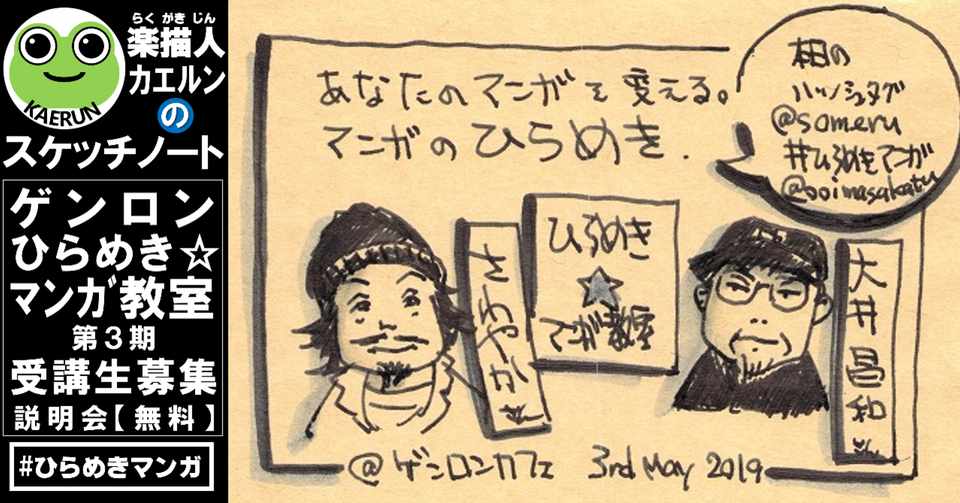 らくがきじん
楽描人
カエルン
の
スケッチノート
KAERUN
ゲンロン
ひらめき☆
マンガ教室
第3期
受講生募集
説明会【無料】
#ひらめきマンガ
あなたのマンガを変える。
マンガのひらめき.
ハッシュタグ
@someru
#ひらめきマンガ
@ooimasakazu
さわやか
ひらめき
☆
マンガ教室
大井昌和
@ゲンロンカフェ 3rd May 2019